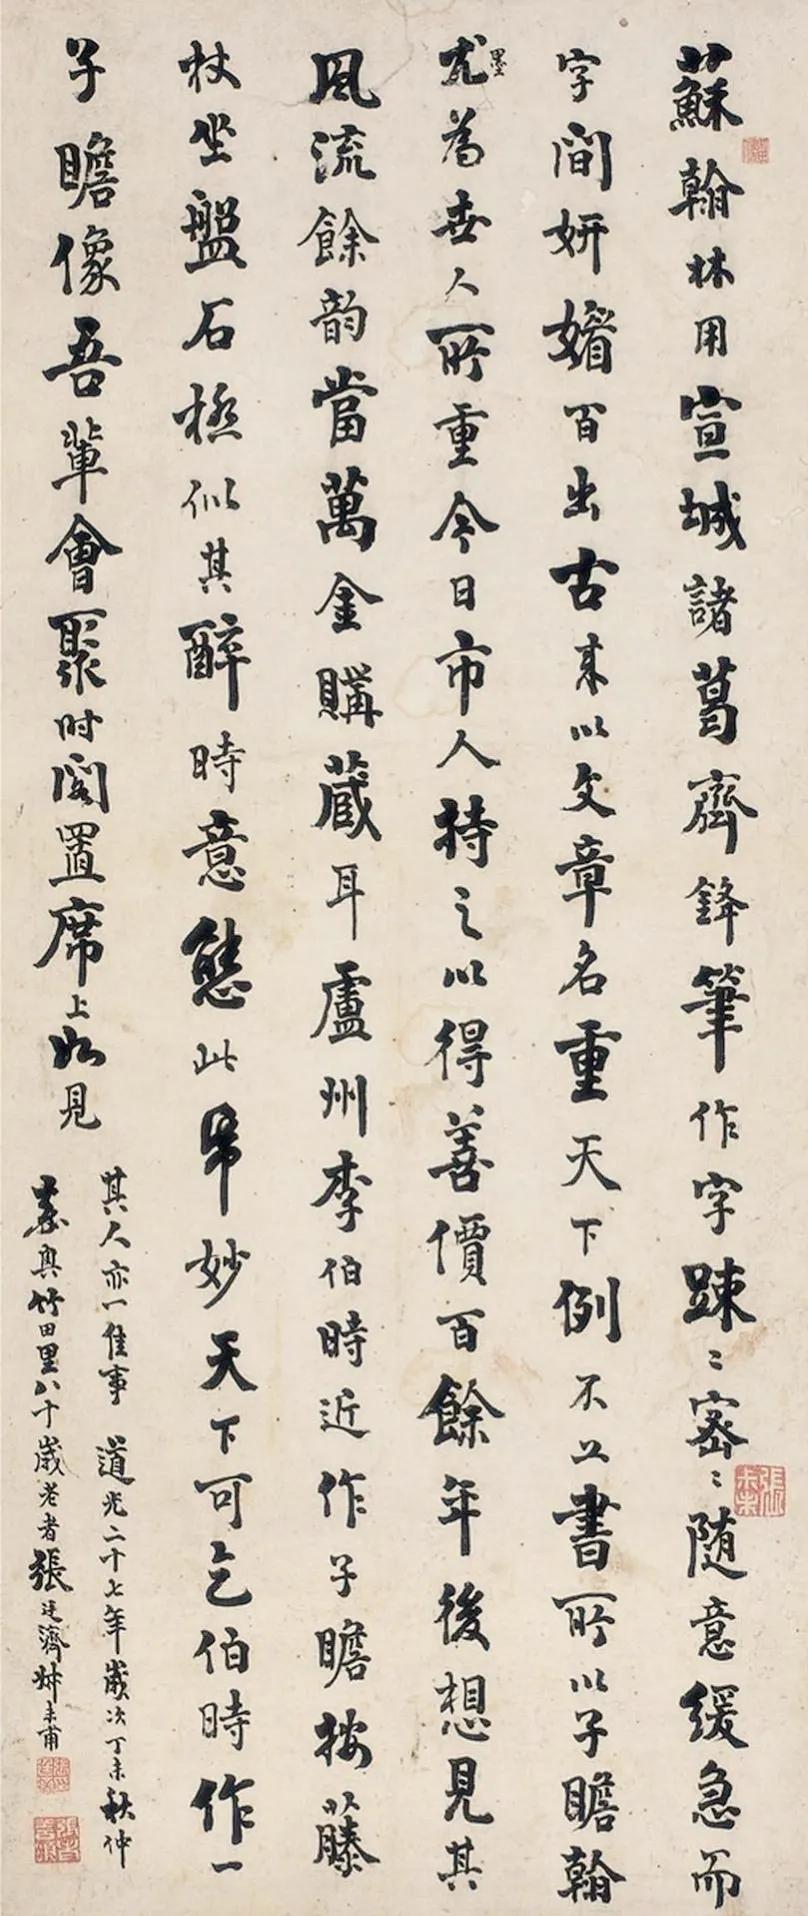 蘇翰林用宣城諸葛齊鋒筆作字踈〻密〻随意緩急而
字間妍媚百出古来以文章名重天下例不工書所以子瞻翰
墨尤為世人所重今日市人持之以得善價百餘年後想見其
風流餘韵當萬金購蔵耳盧州李伯時近作子瞻按藤
杖坐盤石極似其醉時意態此帋妙天下可乞伯時作一
子瞻像吾輩會聚时開置席上如見
其人亦一佳事 道光二十七年歲次丁未秋仲
嘉興竹田里八十歲老者張廷濟尗未甫
張尗未